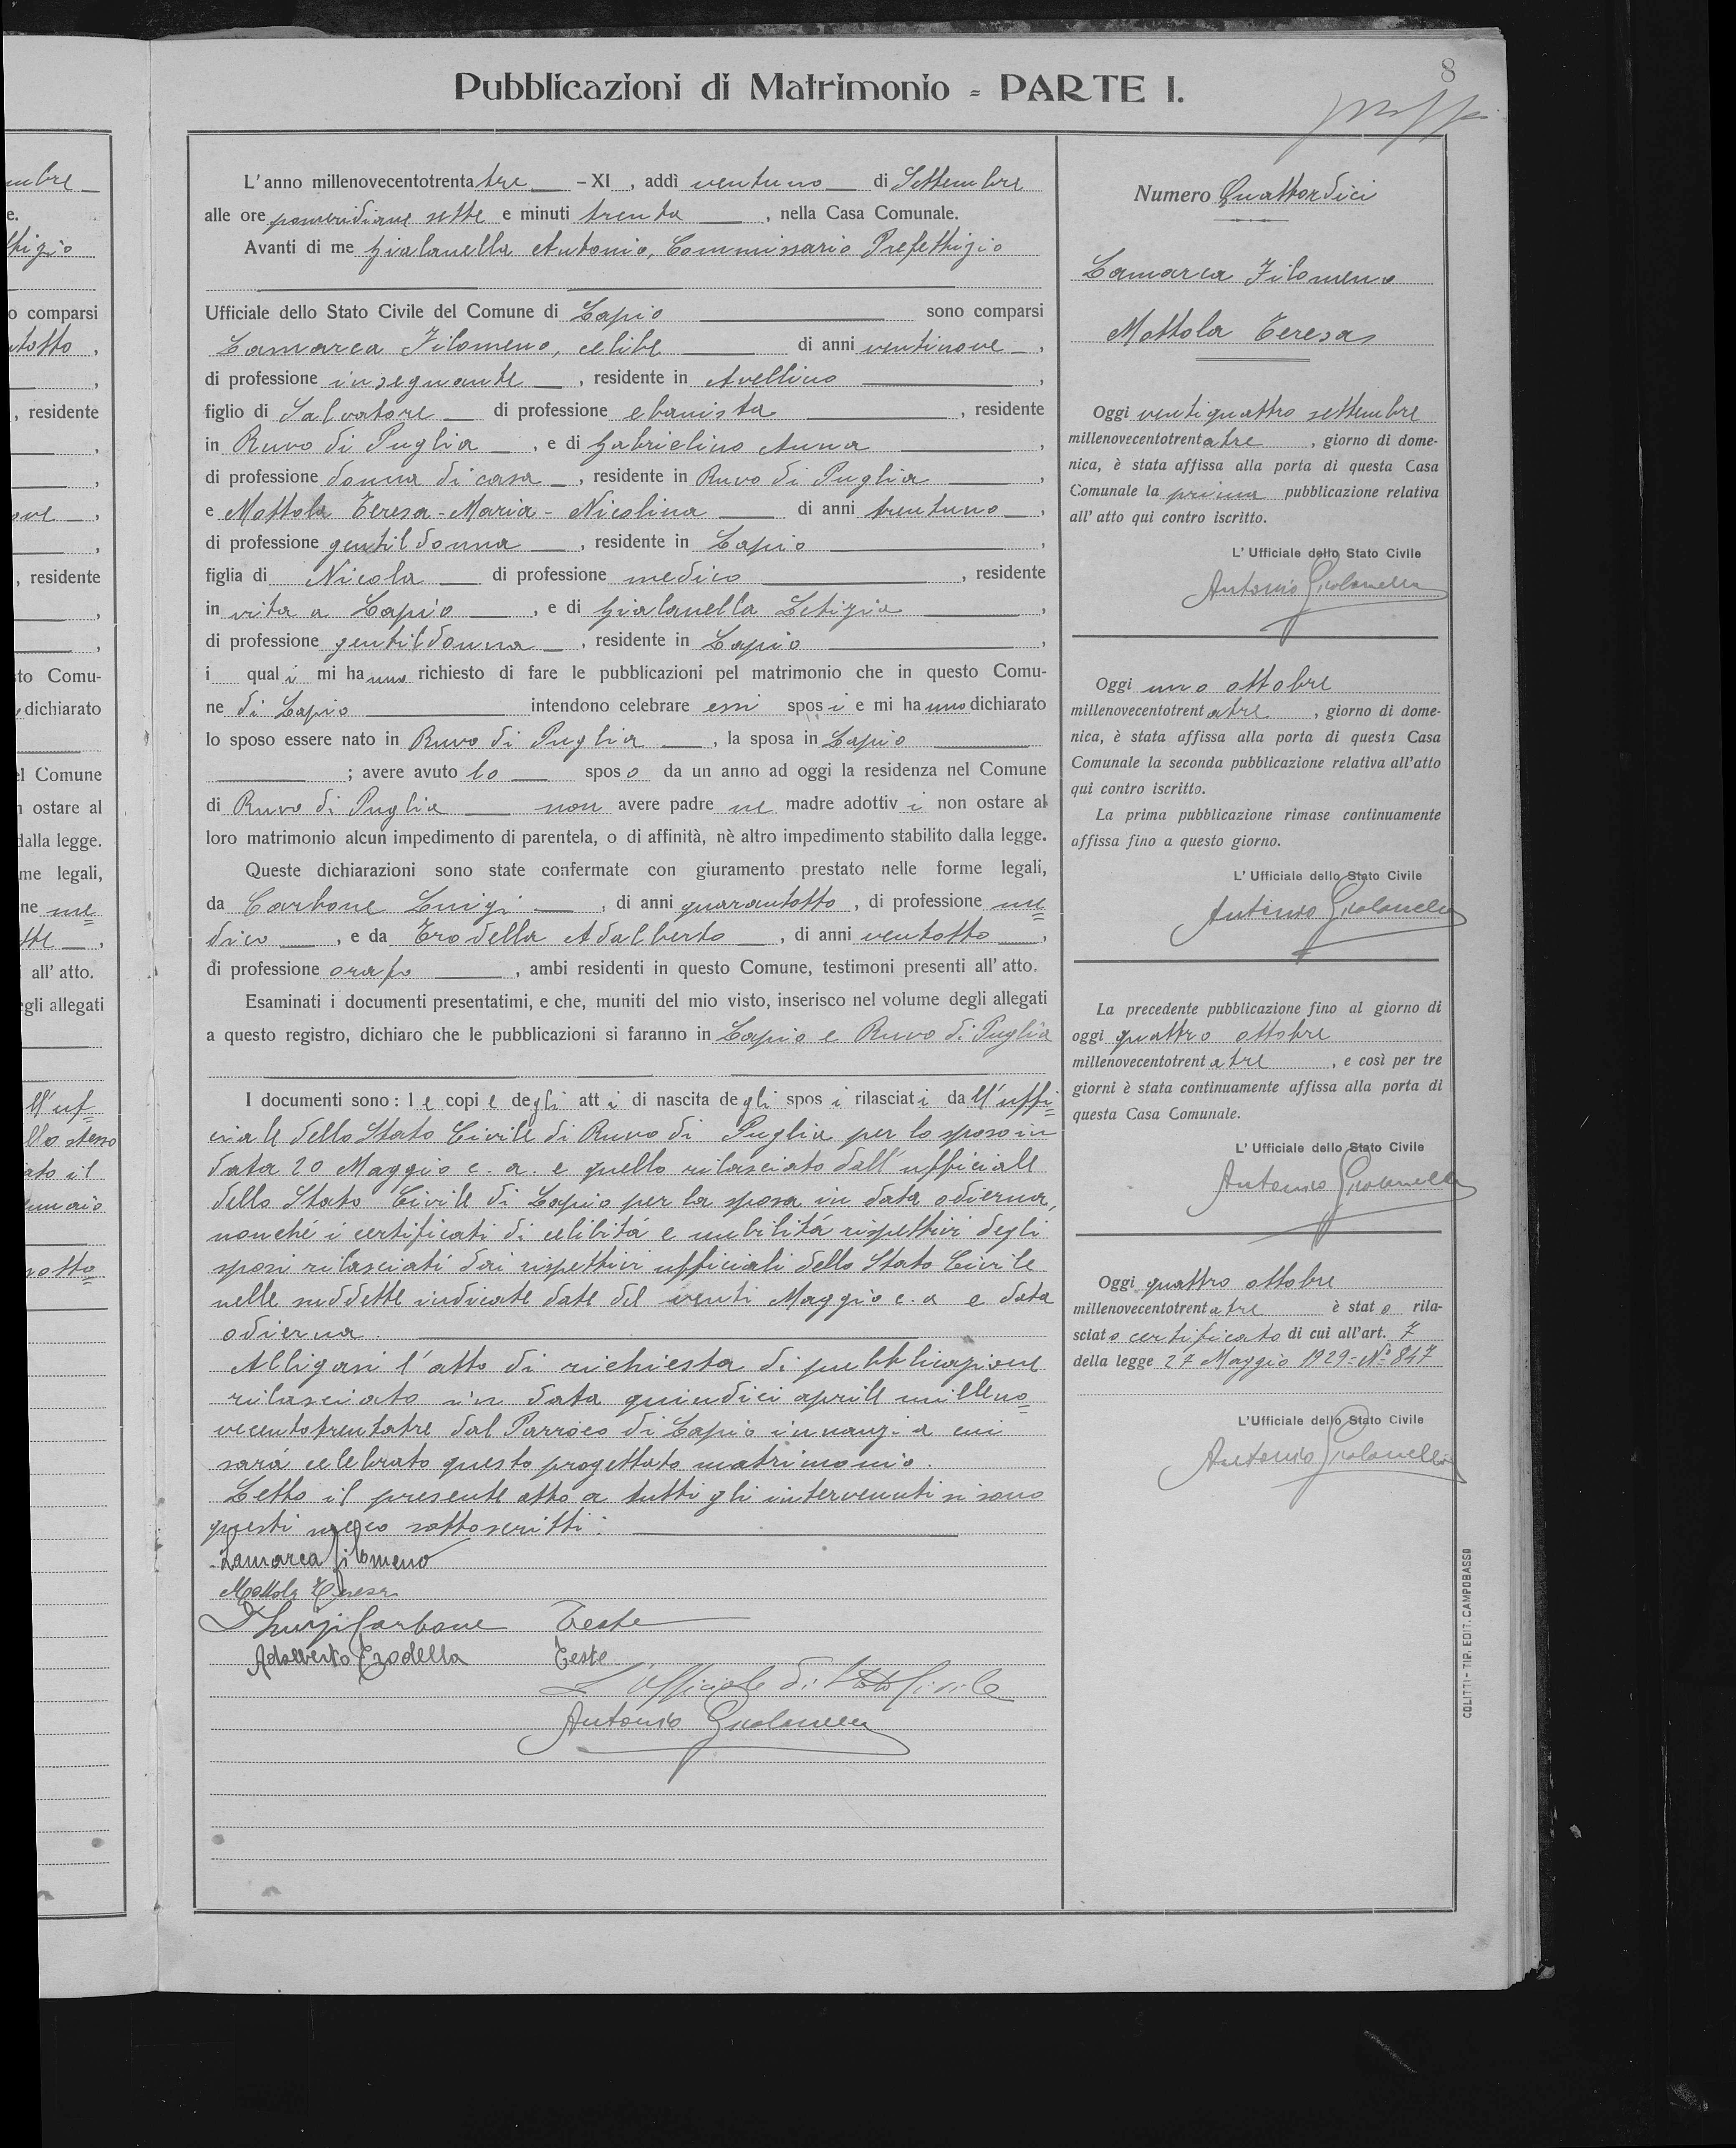 8
Pubblicazioni di Matrimonio - PARTE I.
L'anno millenovecentotrentatre - XI, addì ventuno di Settembre
alle ore pomeridiane sette e minuti trenta, nella Casa Comunale.
Avanti di me Gialanella Antonio, Commissario Prefettizio
Ufficiale dello Stato Civile del Comune di Lapio sono comparsi
Lamarca Filomeno, celibe di anni ventinove,
di professione insegnante, residente in Avellino,
figlio di Salvatore di professione ebanista, residente
in Ruvo di Puglia, e di Gabrielino Anna,
di professione donna di casa, residente in Ruvo di Puglia,
e Mottola Teresa-Maria-Nicolina di anni trentuno,
di professione gentildonna, residente in Lapio,
figlia di Nicola di professione medico, residente
in vita a Lapio, e di Gialanella Letizia,
di professione gentildonna, residente in Lapio,
i quali mi hanno richiesto di fare le pubblicazioni pel matrimonio che in questo Comu-
ne di Lapio intendono celebrare essi sposi e mi hanno dichiarato
lo sposo essere nato in Ruvo di Puglia, la sposa in Lapio
; avere avuto lo sposo da un anno ad oggi la residenza nel Comune
di Ruvo di Puglia non avere padre ne madre adottivi non ostare al
loro matrimonio alcun impedimento di parentela, o di affinità, nè altro impedimento stabilito dalla legge.
Queste dichiarazioni sono state confermate con giuramento prestato nelle forme legali,
da Carbone Luigi, di anni quarantotto, di professione me=
dico, e da Trodella Adalberto, di anni ventotto,
di professione orafo, ambi residenti in questo Comune, testimoni presenti all'atto.
Esaminati i documenti presentatimi, e che, muniti del mio visto, inserisco nel volume degli allegati
a questo registro, dichiaro che le pubblicazioni si faranno in Lapio e Ruvo di Puglia
I documenti sono: le copie degli atti di nascita degli sposi rilasciati dall'uffi=
ciale dello Stato Civile di Ruvo di Puglia per lo sposo in
data 20 Maggio c. a. e quello rilasciato dall'ufficiale
dello Stato Civile di Lapio per la sposa in data odierna,
nonché i certificati di celibitá e nubilitá rispettivi degli
sposi rilasciati dai rispettivi ufficiali dello Stato Civile
nelle suddette indicate date del venti Maggio c. a e data
odierna.
Alligasi l'atto di richiesta di pubblicazione
rilasciato in data quindici aprile milleno=
vecentotrentatre dal Parroco di Lapio innanzi a cui
sará celebrato questo progettato matrimonio.
Letto il presente atto a tutti gli intervenuti si sono
questi meco sottoscritti:
Lamarca Filomeno
Mottola Teresa
Luigi Carbone Teste
Adalberto Trodella Teste
L'Ufficiale di Stato Civile
Antonio Gialanella
Numero Quattordici
Lamarca Filomeno
Mottola Teresa
Oggi ventiquattro settembre
millenovecentotrentatre, giorno di dome-
nica, è stata affissa alla porta di questa Casa
Comunale la prima pubblicazione relativa
all'atto qui contro iscritto.
L'Ufficiale dello Stato Civile
Antonio Gialanella
Oggi uno ottobre
millenovecentotrentatre, giorno di dome-
nica, è stata affissa alla porta di questa Casa
Comunale la seconda pubblicazione relativa all'atto
qui contro iscritto.
La prima pubblicazione rimase continuamente
affissa fino a questo giorno.
L'Ufficiale dello Stato Civile
Antonio Gialanella
La precedente pubblicazione fino al giorno di
oggi quattro ottobre
millenovecentotrentatre, e così per tre
giorni è stata continuamente affissa alla porta di
questa Casa Comunale.
L'Ufficiale dello Stato Civile
Antonio Gialanella
Oggi quattro ottobre
millenovecentotrentatre è stato rila-
sciato certificato di cui all'art. 7
della legge 27 Maggio 1929 = N° 847
L'Ufficiale dello Stato Civile
Antonio Gialanella
COLITTI - TIP. EDIT. CAMPOBASSO